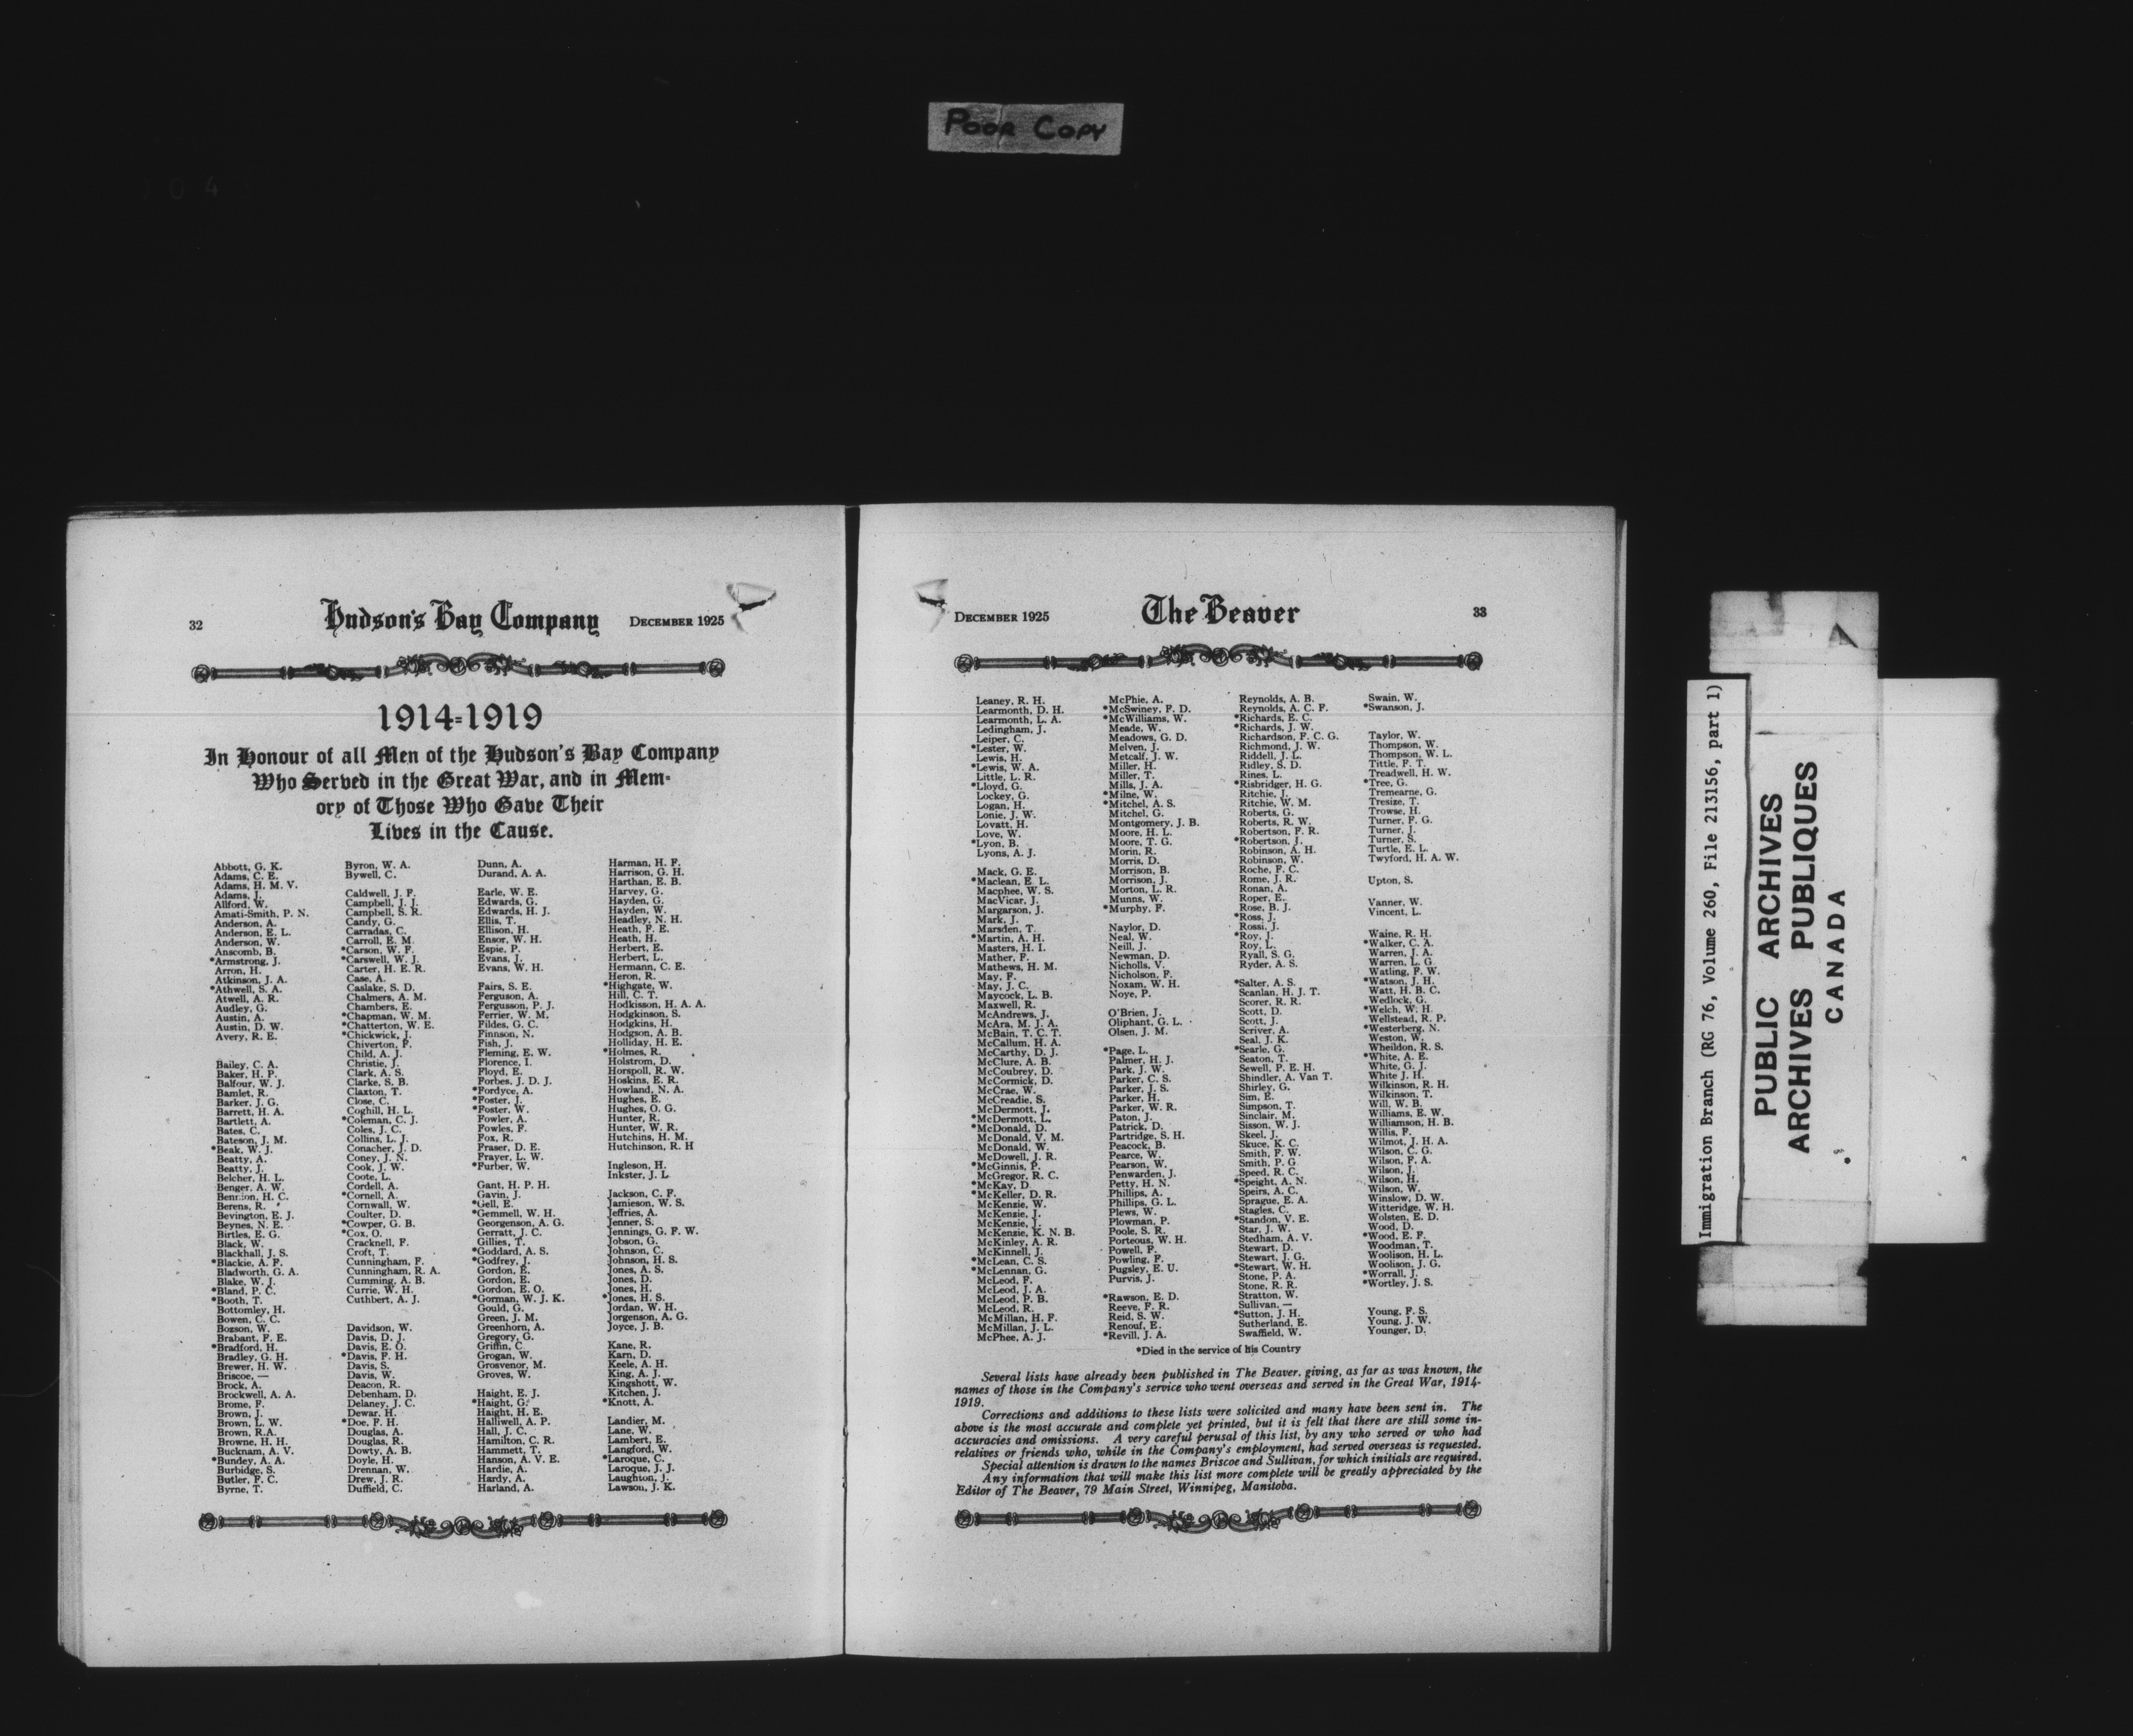 POOR COPY
32
Hudson's Bay Company
DECEMBER 1925
1914-1919
In Honour of all Men of the Hudson's Bay Company
Who Served in the Great War, and in Mem-
ory of Those Who Gave Their
Lives in the Cause.
Abbott, G. K.
Adams, C. E.
Adams, H. M. V.
Adams, J.
Allford, W.
Amati-Smith, P. N.
Anderson, A.
Anderson, E. L.
Anderson, W.
Anscomb, B.
*Armstrong, J.
Arron, H.
Atkinson, J. A.
*Athwell, S. A.
Atwell, A. R.
Audley, G.
Austin, A.
Austin, D. W.
Avery, R. E.
Bailey, C. A.
Baker, H. P.
Balfour, W. J.
Bamlet, R.
Barker, J. G.
Barrett, H. A.
Bartlett, A.
Bates, C.
Bateson, J. M.
*Beak, W. J.
Beatty, A.
Beatty, J.
Belcher, H. L.
Benger, A. W.
Bennion, H. C.
Berens, R.
Bevington, E. J.
Beynes, N. E.
Birtles, E. G.
Black, W.
Blackhall, J. S.
*Blackie, A. F.
Bladworth, G. A.
Blake, W. J.
*Bland, P. C.
*Booth, T.
Bottomley, H.
Bowen, C. C.
Bozson, W.
Brabant, F. E.
*Bradford, H.
Bradley, G. H.
Brewer, H. W.
Briscoe, —
Brock, A.
Brockwell, A. A.
Brome, F.
Brown, J.
Brown, L. W.
Brown, R.A.
Browne, H. H.
Bucknam, A. V.
*Bundey, A. A.
Burbidge, S.
Butler, F. C.
Byrne, T.
Byron, W. A.
Bywell, C.
Caldwell, J. F.
Campbell, J. J.
Campbell, S. R.
Candy, G.
Carradas, C.
Carroll, E. M.
*Carson, W. F.
*Carswell, W. J.
Carter, H. E. R.
Case, A.
Caslake, S. D.
Chalmers, A. M.
Chambers, E.
*Chapman, W. M.
*Chatterton, W. E.
*Chickwick, J.
Chiverton, F.
Child, A. J.
Christie, J.
Clark, A. S.
Clarke, S. B.
Claxton, T.
Close, C.
Coghill, H. L.
*Coleman, C. J.
Coles, J. C.
Collins, L. J.
Conacher, J. D.
Coney, J. N.
Cook, J. W.
Coote, L.
Cordell, A.
*Cornell, A.
Cornwall, W.
Coulter, D.
*Cowper, G. B.
*Cox, O.
Cracknell, F.
Croft, T.
Cunningham, F.
Cunningham, R. A.
Cumming, A. B.
Currie, W. H.
Cuthbert, A. J.
Davidson, W.
Davis, D. J.
Davis, E. O.
*Davis, F. H.
Davis, S.
Davis, W.
Deacon, R.
Debenham, D.
Delaney, J. C.
Dewar, H.
*Doe, F. H.
Douglas, A.
Douglas, R.
Dowty, A. B.
Doyle, H.
Drennan, W.
Drew, J. R.
Duffield, C.
Dunn, A.
Durand, A. A.
Earle, W. E.
Edwards, G.
Edwards, H. J.
Ellis, T.
Ellison, H.
Ensor, W. H.
Espie, P.
Evans, J.
Evans, W. H.
Fairs, S. E.
Ferguson, A.
Fergusson, P. J.
Ferrier, W. M.
Fildes, G. C.
Finnson, N.
Fish, J.
Fleming, E. W.
Florence, I.
Floyd, E.
Forbes, J. D. J.
*Fordyce, A.
*Foster, J.
*Foster, W.
Fowler, A.
Fowles, F.
Fox, R.
Fraser, D. E.
Frayer, L. W.
*Furber, W.
Gant, H. P. H.
Gavin, J.
*Gell, E.
*Gemmell, W. H.
Georgenson, A. G.
Gerratt, J. C.
Gillies, T.
*Goddard, A. S.
*Godfrey, J.
Gordon, E.
Gordon, E.
Gordon, E. O.
*Gorman, W. J. K.
Gould, G.
Green, J. M.
Greenhorn, A.
Gregory, G.
Griffin, C.
Grogan, W.
Grosvenor, M.
Groves, W.
Haight, E. J.
*Haight, G.
Haight, H. E.
Halliwell, A. P.
Hall, J. C.
Hamilton, C. R.
Hammett, T.
Hanson, A. V. E.
Hardie, A.
Hardy, A.
Harland, A.
Harman, H. F.
Harrison, G. H.
Harthan, E. B.
Harvey, G.
Hayden, G.
Hayden, W.
Headley, N. H.
Heath, F. E.
Heath, H.
Herbert, E.
Herbert, L.
Hermann, C. E.
Heron, R.
*Highgate, W.
Hill, C. T.
Hodkisson, H. A. A.
Hodgkinson, S.
Hodgkins, H.
Hodgson, A. B.
Holliday, H. E.
*Holmes, R.
Holstrom, D.
Horspoll, R. W.
Hoskins, E. R.
Howland, N. A.
Hughes, E.
Hughes, O. G.
Hunter, R.
Hunter, W. R.
Hutchins, H. M.
Hutchinson, R. H
Ingleson, H.
Inkster, J. L
Jackson, C. F.
Jamieson, W. S.
Jeffries, A.
Jenner, S.
Jennings, G. F. W.
Jobson, G.
Johnson, C.
Johnson, H. S.
Jones, A. S.
Jones, D.
Jones, H.
*Jones, H. S.
Jordan, W. H.
Jorgenson, A. G.
Joyce, J. B.
Kane, R.
Karn, D.
Keele, A. H.
King, A. J.
Kingshott, W.
Kitchen, J.
*Knott, A.
Landier, M.
Lane, W.
Lambert, E.
Langford, W.
*Laroque, C.
Laroque, J. J.
Laughton, J.
Lawson, J. K.
DECEMBER 1925
The Beaver
33
Leaney, R. H.
Learmonth, D. H.
Learmonth, L. A.
Ledingham, J.
Leiper, C.
*Lester, W.
Lewis, H.
*Lewis, W. A.
Little, L. R.
*Lloyd, G.
Lockey, G.
Logan, H.
Lonie, J. W.
Lovatt, H.
Love, W.
*Lyon, B.
Lyons, A. J.
Mack, G. E.
*Maclean, E. L.
Macphee, W. S.
MacVicar, J.
Margarson, J.
Mark, J.
Marsden, T.
*Martin, A. H.
Masters, H. I.
Mather, F.
Mathews, H. M.
May, F.
May, J. C.
Maycock, L. B.
Maxwell, R.
McAndrews, J.
McAra, M. J. A.
McBain, T. C. T.
McCallum, H. A.
McCarthy, D. J.
McClure, A. B.
McCoubrey, D.
McCormick, D.
McCrae, W.
McCreadie, S.
McDermott, J.
*McDermott, L.
*McDonald, D.
McDonald, V. M.
McDonald, W.
McDowell, J. R.
*McGinnis, P.
McGregor, R. C.
*McKay, D.
*McKeller, D. R.
McKenzie, W.
McKenzie, J.
McKenzie, J.
McKenzie, K. N. B.
McKinley, A. R.
McKinnell, J.
*McLean, C. S.
*McLennan, G.
McLeod, F.
McLeod, J. A.
McLeod, P. B.
McLeod, R.
McMillan, H. F.
McMillan, J. L.
McPhee, A. J.
McPhie, A.
*McSwiney, F. D.
*McWilliams, W.
Meade, W.
Meadows, G. D.
Melven, J.
Metcalf, J. W.
Miller, H.
Miller, T.
Mills, J. A.
*Milne, W.
*Mitchel, A. S.
Mitchel, G.
Montgomery, J. B.
Moore, H. L.
Moore, T. G.
Morin, R.
Morris, D.
Morrison, B.
Morrison, J.
Morton, L. R.
Munns, W.
*Murphy, F.
Naylor, D.
Neal, W.
Neill, J.
Newman, D.
Nicholls, V.
Nicholson, F.
Noxam, W. H.
Noye, P.
O'Brien, J.
Oliphant, G. L.
Olsen, J. M.
*Page, L.
Palmer, H. J.
Park, J. W.
Parker, C. S.
Parker, J. S.
Parker, H.
Parker, W. R.
Paton, J.
Patrick, D.
Partridge, S. H.
Peacock, B.
Pearce, W.
Pearson, W.
Penwarden, J.
Petty, H. N.
Phillips, A.
Phillips, G. L.
Plews, W.
Plowman, P.
Poole, S. R.
Porteous, W. H.
Powell, F.
Powling, F.
Pugsley, E. U.
Purvis, J.
*Rawson, E. D.
Reeve, F. R.
Reid, S. W.
Renouf, E.
*Revill, J. A.
Reynolds, A. B.
Reynolds, A. C. F.
*Richards, E. C.
*Richards, J. W.
Richardson, F. C. G.
Richmond, J. W.
Riddell, J. L.
Ridley, S. D.
Rines, L.
*Risbridger, H. G.
Ritchie, J.
Ritchie, W. M.
Roberts, G.
Roberts, R. W.
Robertson, F. R.
*Robertson, J.
Robinson, A. H.
Robinson, W.
Roche, F. C.
Rome, J. R.
Ronan, A.
Roper, E.
Rose, B. J.
*Ross, J.
Rossi, J.
*Roy, J.
Roy, L.
Ryall, S. G.
Ryder, A. S.
*Salter, A. S.
Scanlan, H. J. T.
Scorer, R. R.
Scott, D.
Scott, J.
Scriver, A.
Seal, J. K.
*Searle, G.
Seaton, T.
Sewell, P. E. H.
Shindler, A. Van T.
Shirley, G.
Sim, E.
Simpson, T.
Sinclair, M.
Sisson, W. J.
Skeel, J.
Skuce, K. C.
Smith, F. W.
Smith, P. G
Speed, R. C.
*Speight, A. N.
Speirs, A. C.
Sprague, E. A.
Stagles, C.
*Standon, V. E.
Star, J. W.
Stedham, A. V.
Stewart, D.
Stewart, J. G.
*Stewart, W. H.
Stone, P. A.
Stone, R. R.
Stratton, W.
Sullivan, —
*Sutton, J. H.
Sutherland, E.
Swaffield, W.
Swain, W.
*Swanson, J.
Taylor, W.
Thompson, W.
Thompson, W. L.
Tittle, F. T.
Treadwell, H. W.
*Tree, G.
Tremearne, G.
Tresize, T.
Trowse, H.
Turner, F. G.
Turner, J.
Turner, S.
Turtle, E. L.
Twyford, H. A. W.
Upton, S.
Vanner, W.
Vincent, L.
Waine, R. H.
*Walker, C. A.
Warren, J. A.
Warren, L. G.
Watling, F. W.
*Watson, J. H.
Watt, H. B. C.
Wedlock, G.
*Welch, W. H.
Wellstead, R. P.
*Westerberg, N.
Weston, W.
Wheildon, R. S.
*White, A. E.
White, G. J.
White J. H.
Wilkinson, R. H.
Wilkinson, T.
Will, W. B.
Williams, E. W.
Williamson, H. B.
Willis, F.
Wilmot, J. H. A.
Wilson, C. G.
Wilson, F. A.
Wilson, J.
Wilson, H.
Wilson, W.
Winslow, D. W.
Witteridge, W. H.
Wolsten, E. D.
Wood, D.
*Wood, E. F.
Woodman, T.
Woolison, H. L.
Woolison, J. G.
*Worrall, J.
*Wortley, J. S.
Young, F. S.
Young, J. W.
Younger, D.
*Died in the service of his Country
Several lists have already been published in The Beaver, giving, as far as was known, the
names of those in the Company's service who went overseas and served in the Great War, 1914-
1919.
Corrections and additions to these lists were solicited and many have been sent in. The
above is the most accurate and complete yet printed, but it is felt that there are still some in-
accuracies and omissions. A very careful perusal of this list, by any who served or who had
relatives or friends who, while in the Company's employment, had served overseas is requested.
Special attention is drawn to the names Briscoe and Sullivan, for which initials are required.
Any information that will make this list more complete will be greatly appreciated by the
Editor of The Beaver, 79 Main Street, Winnipeg, Manitoba.
Immigration Branch (RG 76, Volume 260, File 213156, part 1)
PUBLIC ARCHIVES
ARCHIVES PUBLIQUES
CANADA